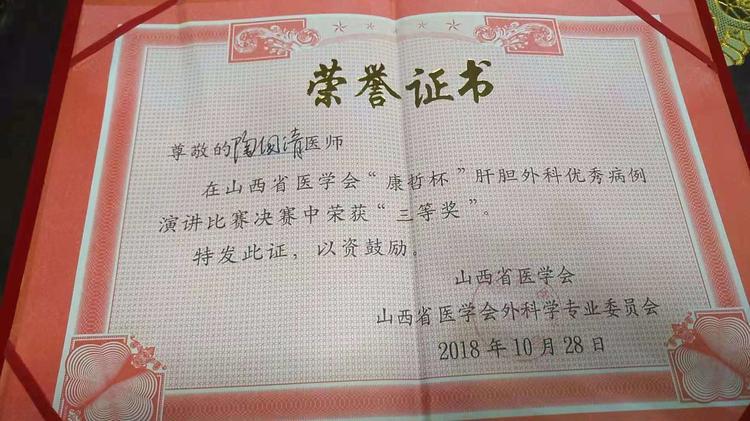 荣誉证书
尊敬的陶国清医师
在山西省医学会“康哲杯”肝胆外科优秀病例
演讲比赛决赛中荣获“三等奖”。
特发此证，以资鼓励。
山西省医学会
山西省医学会外科学专业委员会
2018年10月28日